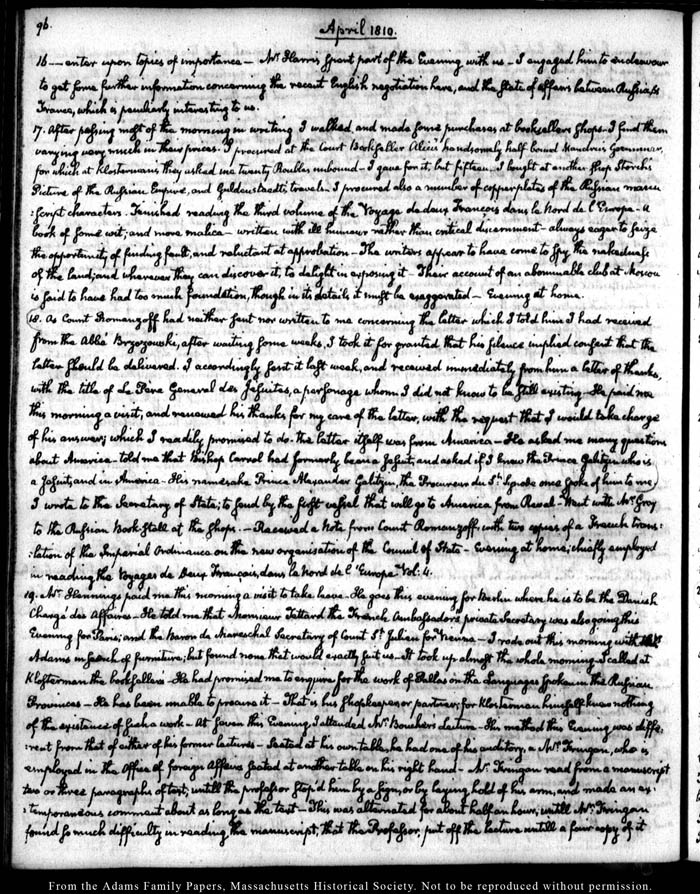 96.
April 1810.
16 — enter upon topics of importance — Mr. Harris spent part of the Evening with us — I engaged him to endeavour
to get some further information concerning the recent English negotiation here, and the state of affairs between Russia &
France, which is peculiarly interesting to us.
17. After passing most of the morning in writing I walked and made some purchases at booksellers shops. I find them
varying very much in their prices. I procured at the Court Bookseller Alici's handsomely half bound Maudru's Grammar,
for which at Klosterman's they asked me twenty Roubles unbound — I gave for it, but fifteen. I bought at another shop Storch's
Picture of the Russian Empire, and Guldenstaedt's travels — I procured also a number of copperplates of the Russian manu
:script characters. Finished reading the third volume of the Voyage de deux Francois dans le Nord de l'Europe — A
book of some wit; and more malice — written with ill humour rather than critical discernment — always eager to seize
the opportunity of finding fault, and reluctant at approbation — The writers appear to have come to spy the nakedness
of the land; and wherever they can discover it, to delight in exposing it — Their account of an abominable club at Moscow
is said to have had too much foundation, though in its details it must be exaggerated — Evening at home.
18. As Count Romanzoff had neither sent nor written to me concerning the letter which I told him I had received
from the Abbé Bryozowski, after waiting some weeks, I took it for granted that his silence implied consent that the
letter should be delivered. I accordingly sent it last week, and received immediately from him a letter of thanks,
with the title of Le Pere General des Jesuites, a personage whom I did not know to be still existing — He paid me
this morning a visit; and renewed his thanks for my care of the letter, with the request that I would take charge
of his answer; which I readily promised to do. the letter itself was from America — He asked me many questions
about America — told me that Bishop Carrol had formerly been a Jesuit, and asked if I knew the Prince Galitzin who is
a Jesuit, and in America — His namesake Prince Alexander Galitzin, the Procureur du St. Synode once spoke of him to me
I wrote to the Secretary of State; to send by the first vessel that will go to America from Reval — Went with Mr. Gray
to the Russian Book Stall at the shops. — Received a Note from Count Romanzoff, with two copies of a French trans:
:lation of the Imperial Ordinance on the new organisation of the Council of State — Evening at home; chiefly employed
in reading the Voyages de Deux Francais, dans le Nord de l'Europe Vol: 4.
19. Mr. Hennings paid me this morning a visit to take leave — He goes this evening for Berlin where he is to be the Danish
Chargé des Affaires — He told me that Monsieur Tattard the French Ambassador's private Secretary was also going this
Evening for Paris; and the Baron de Mareschal Secretary of Count St. Julien for Vienna — I rode out this morning with Mrs.
Adams in search of furniture; but found none that would exactly suit us. It took up almost the whole morning. I called at
Klosterman the booksellers — He had promised me to enquire for the work of Pallas on the Languages spoken in the Russian
Provinces — He has been unable to procure it — That is his shopkeeper or partner; for Klosterman himself knew nothing
of the existence of such a work — At seven this Evening I attended Mr. Boucher's Lecture — His method this Evening was diffe:
:rent from that of either of his former lectures — Seated at his own table, he had one of his auditory, a Mr. who is
employed in the Office of foreign Affairs seated at another table on his right hand — Mr. read from a manuscript
two or three paragraphs of text, untill the professor stop'd him by a sign, or by laying hold of his arm, and made an ex:
:temporaneous comment about as long as the text — This was alternated for about half an hour, untill Mr.
found so much difficulty in reading the manuscript, that the Professor, put off the lecture untill a fair copy of it
From the Adams Family Papers, Massachusetts Historical Society. Not to be reproduced without permission.